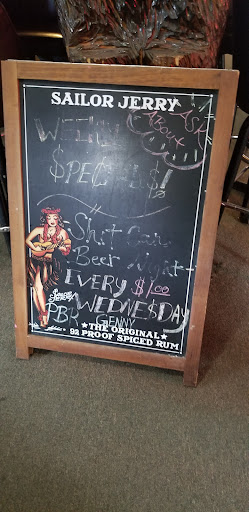 SAILOR JERRY
WEEKLY
$PECIAL$!
ASK
ABOUT
Beer Night
EVERY $1.00
WEDNE$DAY
PBR GENNY
THE ORIGINAL
92 PROOF SPICED RUM